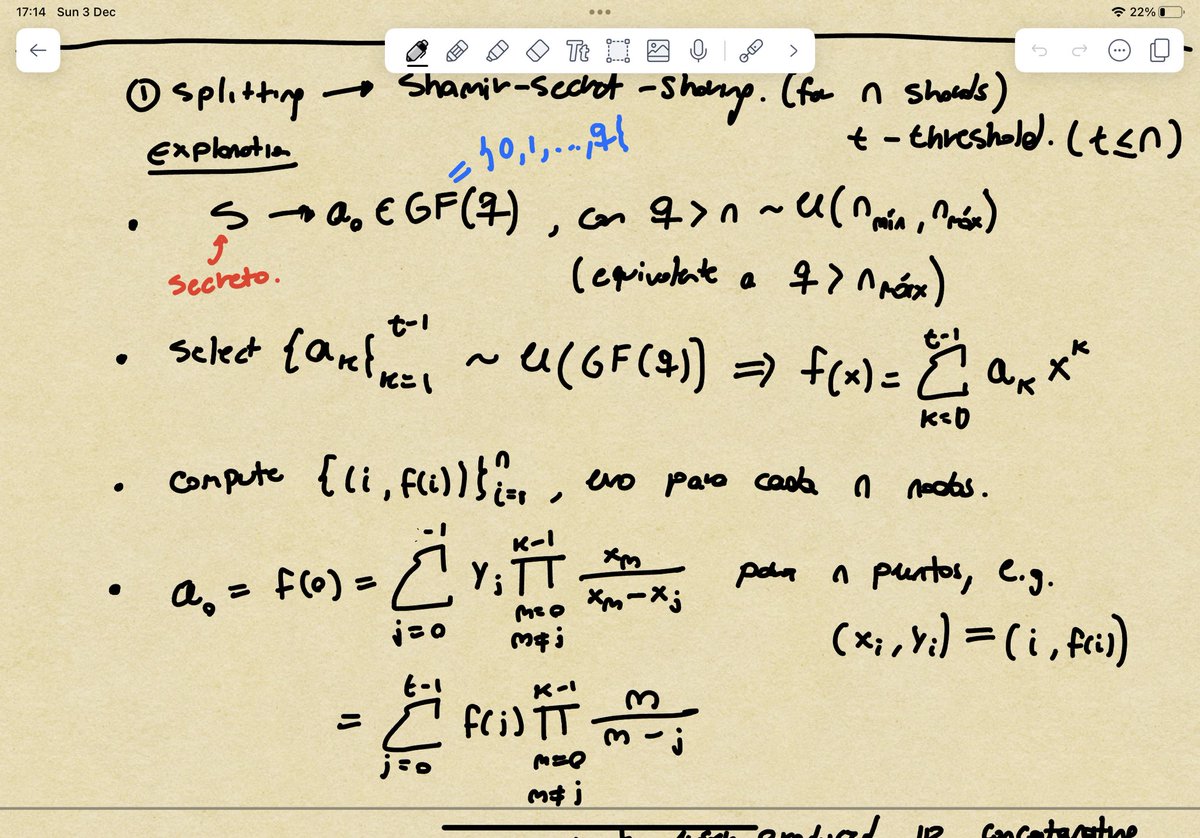 17:14 Sun 3 Dec
22%
Tt
① Splitting → Shamir-secret-sharing. (for n shards)
t - threshold. (t ≤ n)
Explanation
= {0,1,...,q}
• S → a₀ ∈ GF(q), con q > n ~ U(n_mín, n_máx)
Secreto.
(equivalente a q > n_máx)
• Select {a_k}_{k=1}^{t-1} ~ U(GF(q)) ⇒ f(x) = Σ_{k=0}^{t-1} a_k x^k
• Compute {(i, f(i))}_{i=1}^{n}, uno para cada n nodos.
• a₀ = f(0) = Σ_{j=0}^{-1} y_j Π_{m=0, m≠j}^{k-1} x_m / (x_m - x_j) para n puntos, e.g.
(x_i, y_i) = (i, f(i))
= Σ_{j=0}^{t-1} f(j) Π_{m=0, m≠j}^{k-1} m / (m - j)